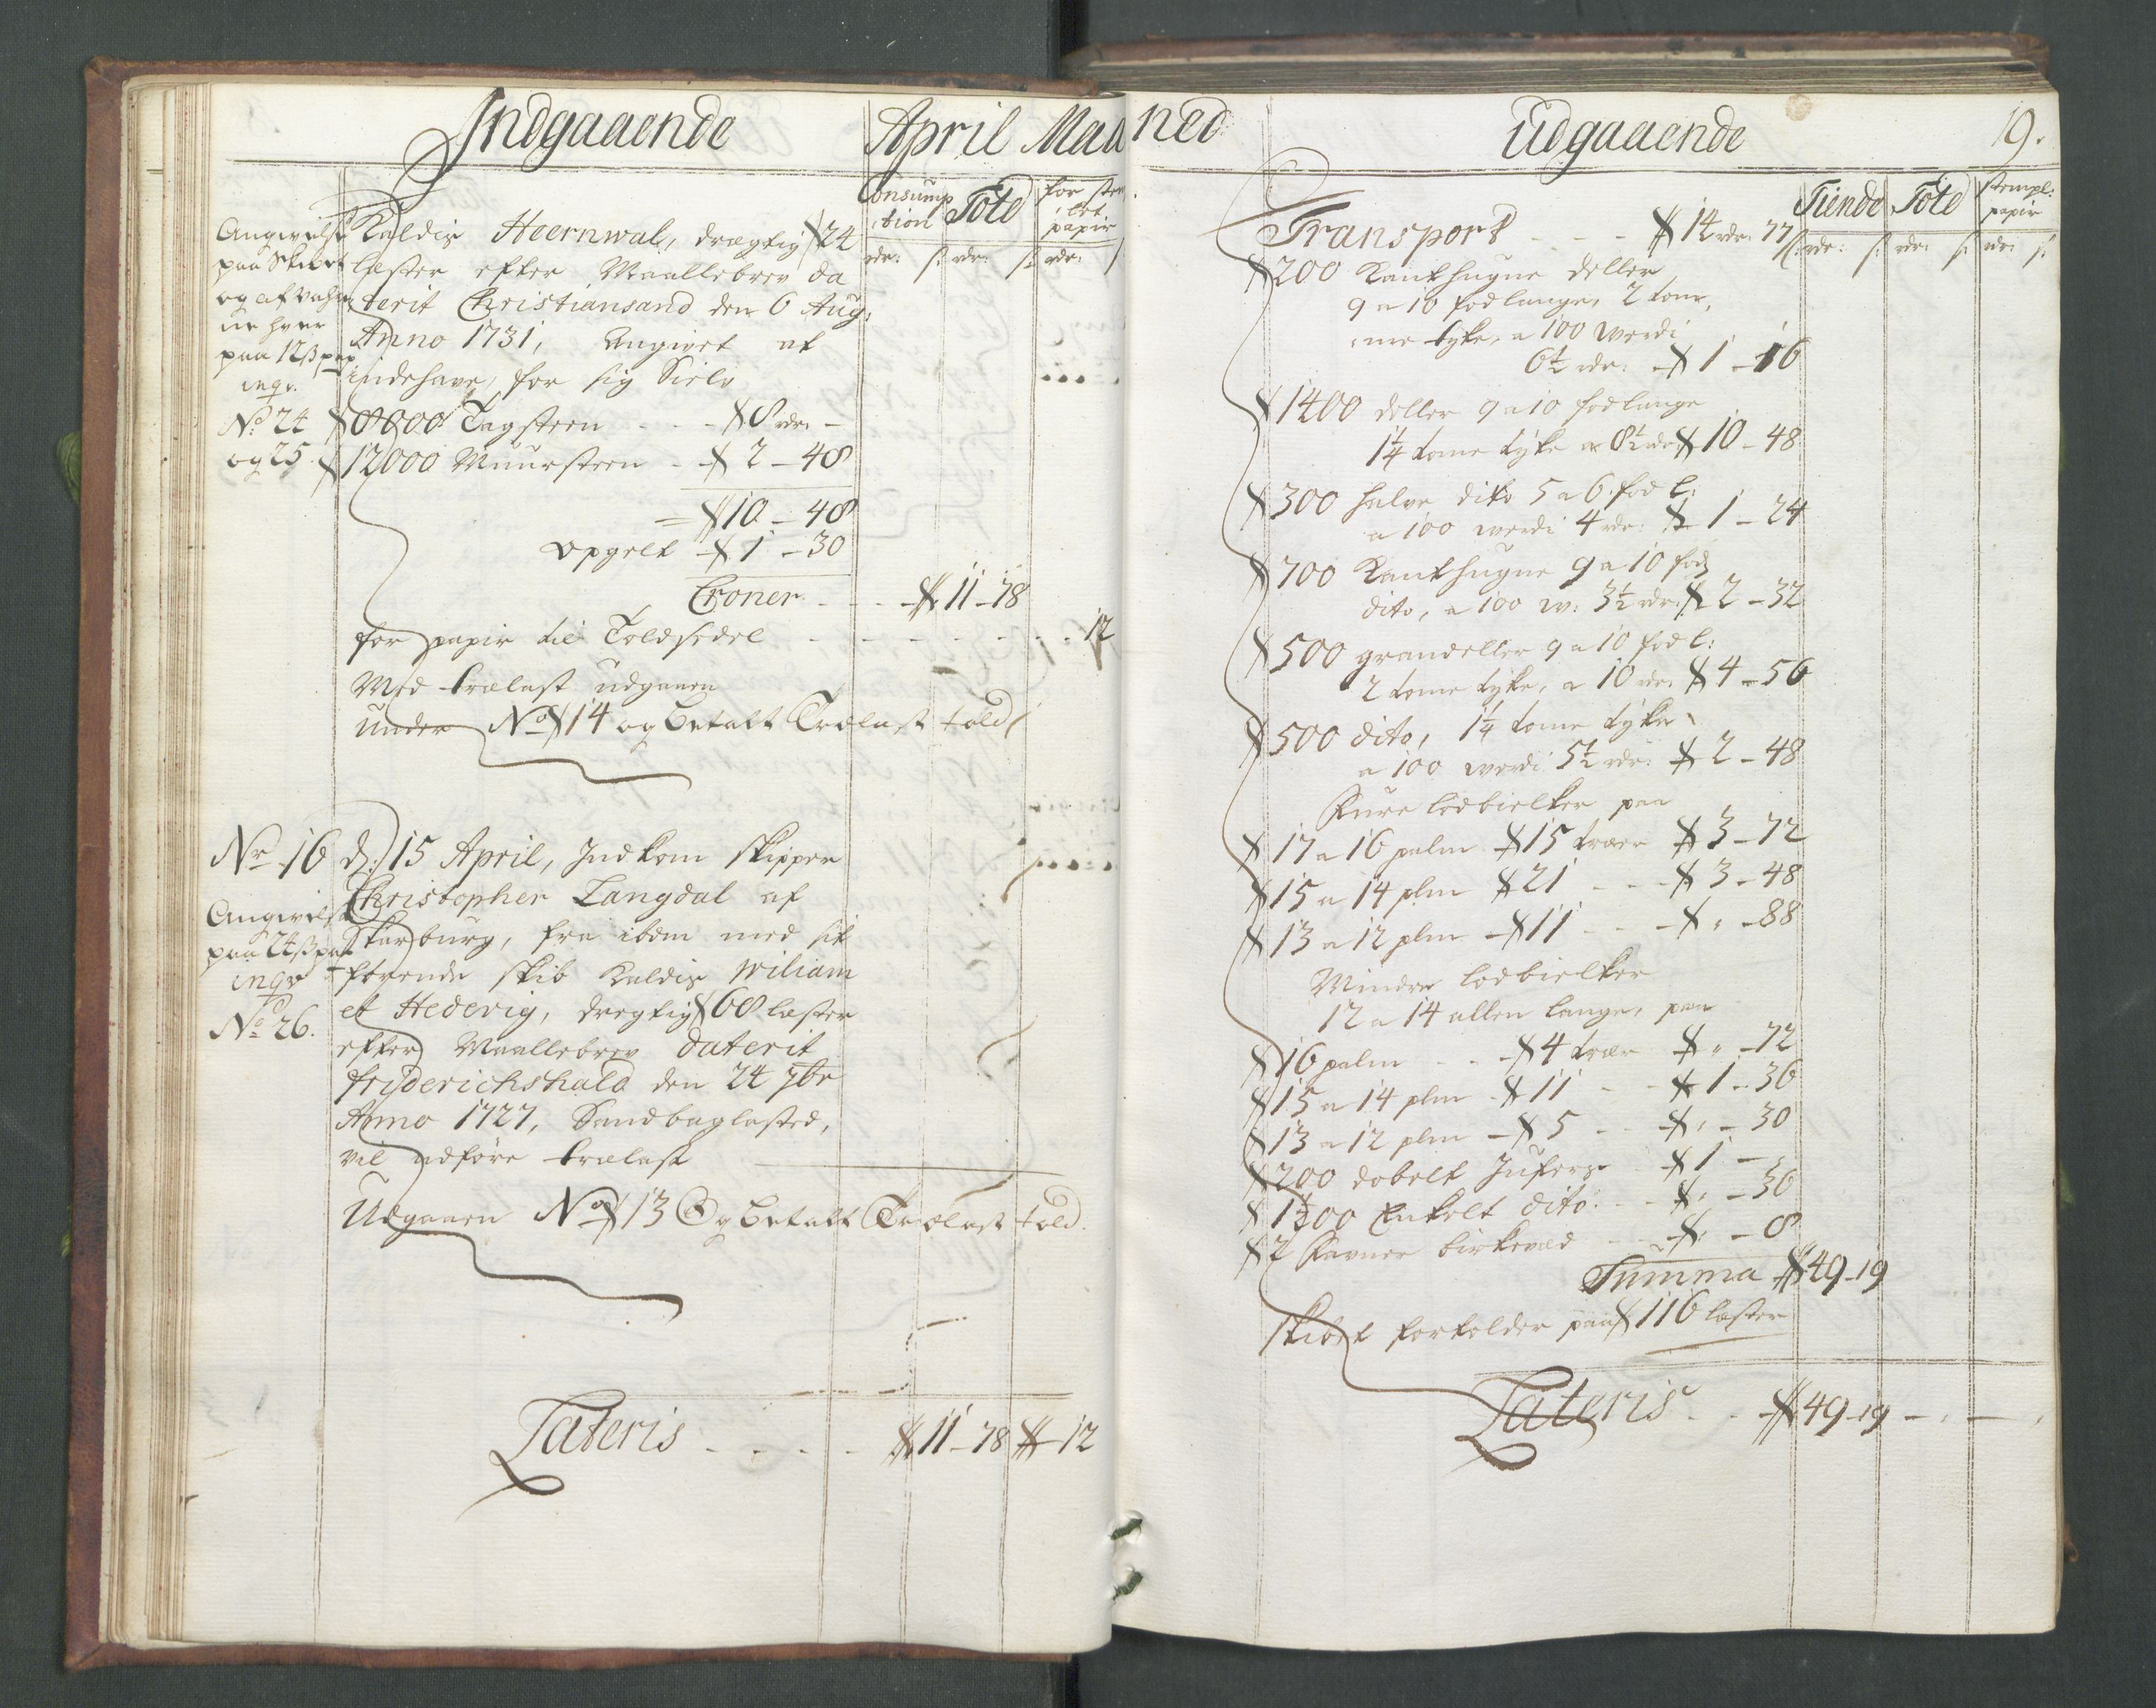 Indgaaende April Maa
Consump
ition Told for stem
let
papir
rdr: s: rdr: s: rdr: s
Angivelse
paa Skibet
og af vahre
ne hver
paa 12 s pap
ingr.
No 24
og 25
Kaldis Heernwal, drægtig 24
læster efter Maallebrev da
terit Christiansand den 6 Aug:
Anno 1731, Angivet at
indehave, for sig Sielv
8000 Tagsteen - - - 8 rdr. -
12000 Muursteen - 2 - 48
= 10 - 48
Opgelt 1 - 30
Croner - - - 11 - 78
for papir til Toldsedel - - - - - - - 12
Med trælast udgaaen
under No 14 og betalt Trælast told
Nr 16
Angivelse
paa 24 s pap
ingr
No 26.
d: 15 April, Indkom skipper
Christopher Langdal af
Starburg, fra ibdm med sit
førende skib Kaldis Wiliam
et Hedevig, dregtig 68 læster
efter Maallebrev daterit
friderichshald den 24 7br
Anno 1727, Sandbaglasted,
vil udføre trælast
Udgaaen No 13 Og betalt Trælast told.
Lateris - - - - - 11 - 78 - 12
ned Udgaaende 19.
Tiende Told stempl:
papir
rdr: s: rdr: s: rdr: s:
Transport - - - 14 rdr: 77 s:
200 Kanthugne deller
9 a 10 fod lange, 2 tom,
me tyke, a 100 werdi
6½ rdr: 1 - 16
1400 deller 9 a 10 fod lange
1¼ tome tyke a 8½ rdr 10 - 48
300 halve dito 5 a 6 fod l:
a 100 werdi 4 rdr: 1 - 24
700 Kanthugne 9 a 10 fod
dito, a 100 w: 3½ rdr: 2 - 32
500 grandeller 9 a 10 fod l:
2 tome tyke, a 10 rdr: 4 - 56
500 dito, 1¼ tome tyke
a 100 werdi 5½ rdr: 2 - 48
Fure lodbielker paa
17 a 16 palm 15 træer 3 - 72
15 a 14 plm 21 - - - 3 - 48
13 a 12 plm - 11 - - - " - 88
Mindre lodbielker
12 a 14 allen lange, paa
16 palm - - - 4 træer " - 72
15 a 14 plm 11 - - 1 - 36
13 a 12 plm - 5 - - " - 30
200 dobelt Jufers 1 - "
1½00 Enkelt dito: - - " - 36
2 Favner birkeved - - - " - 8
Summa 49 - 19
skibet forholder paa 116 læster
Lateris - - 49 - 19 - " -